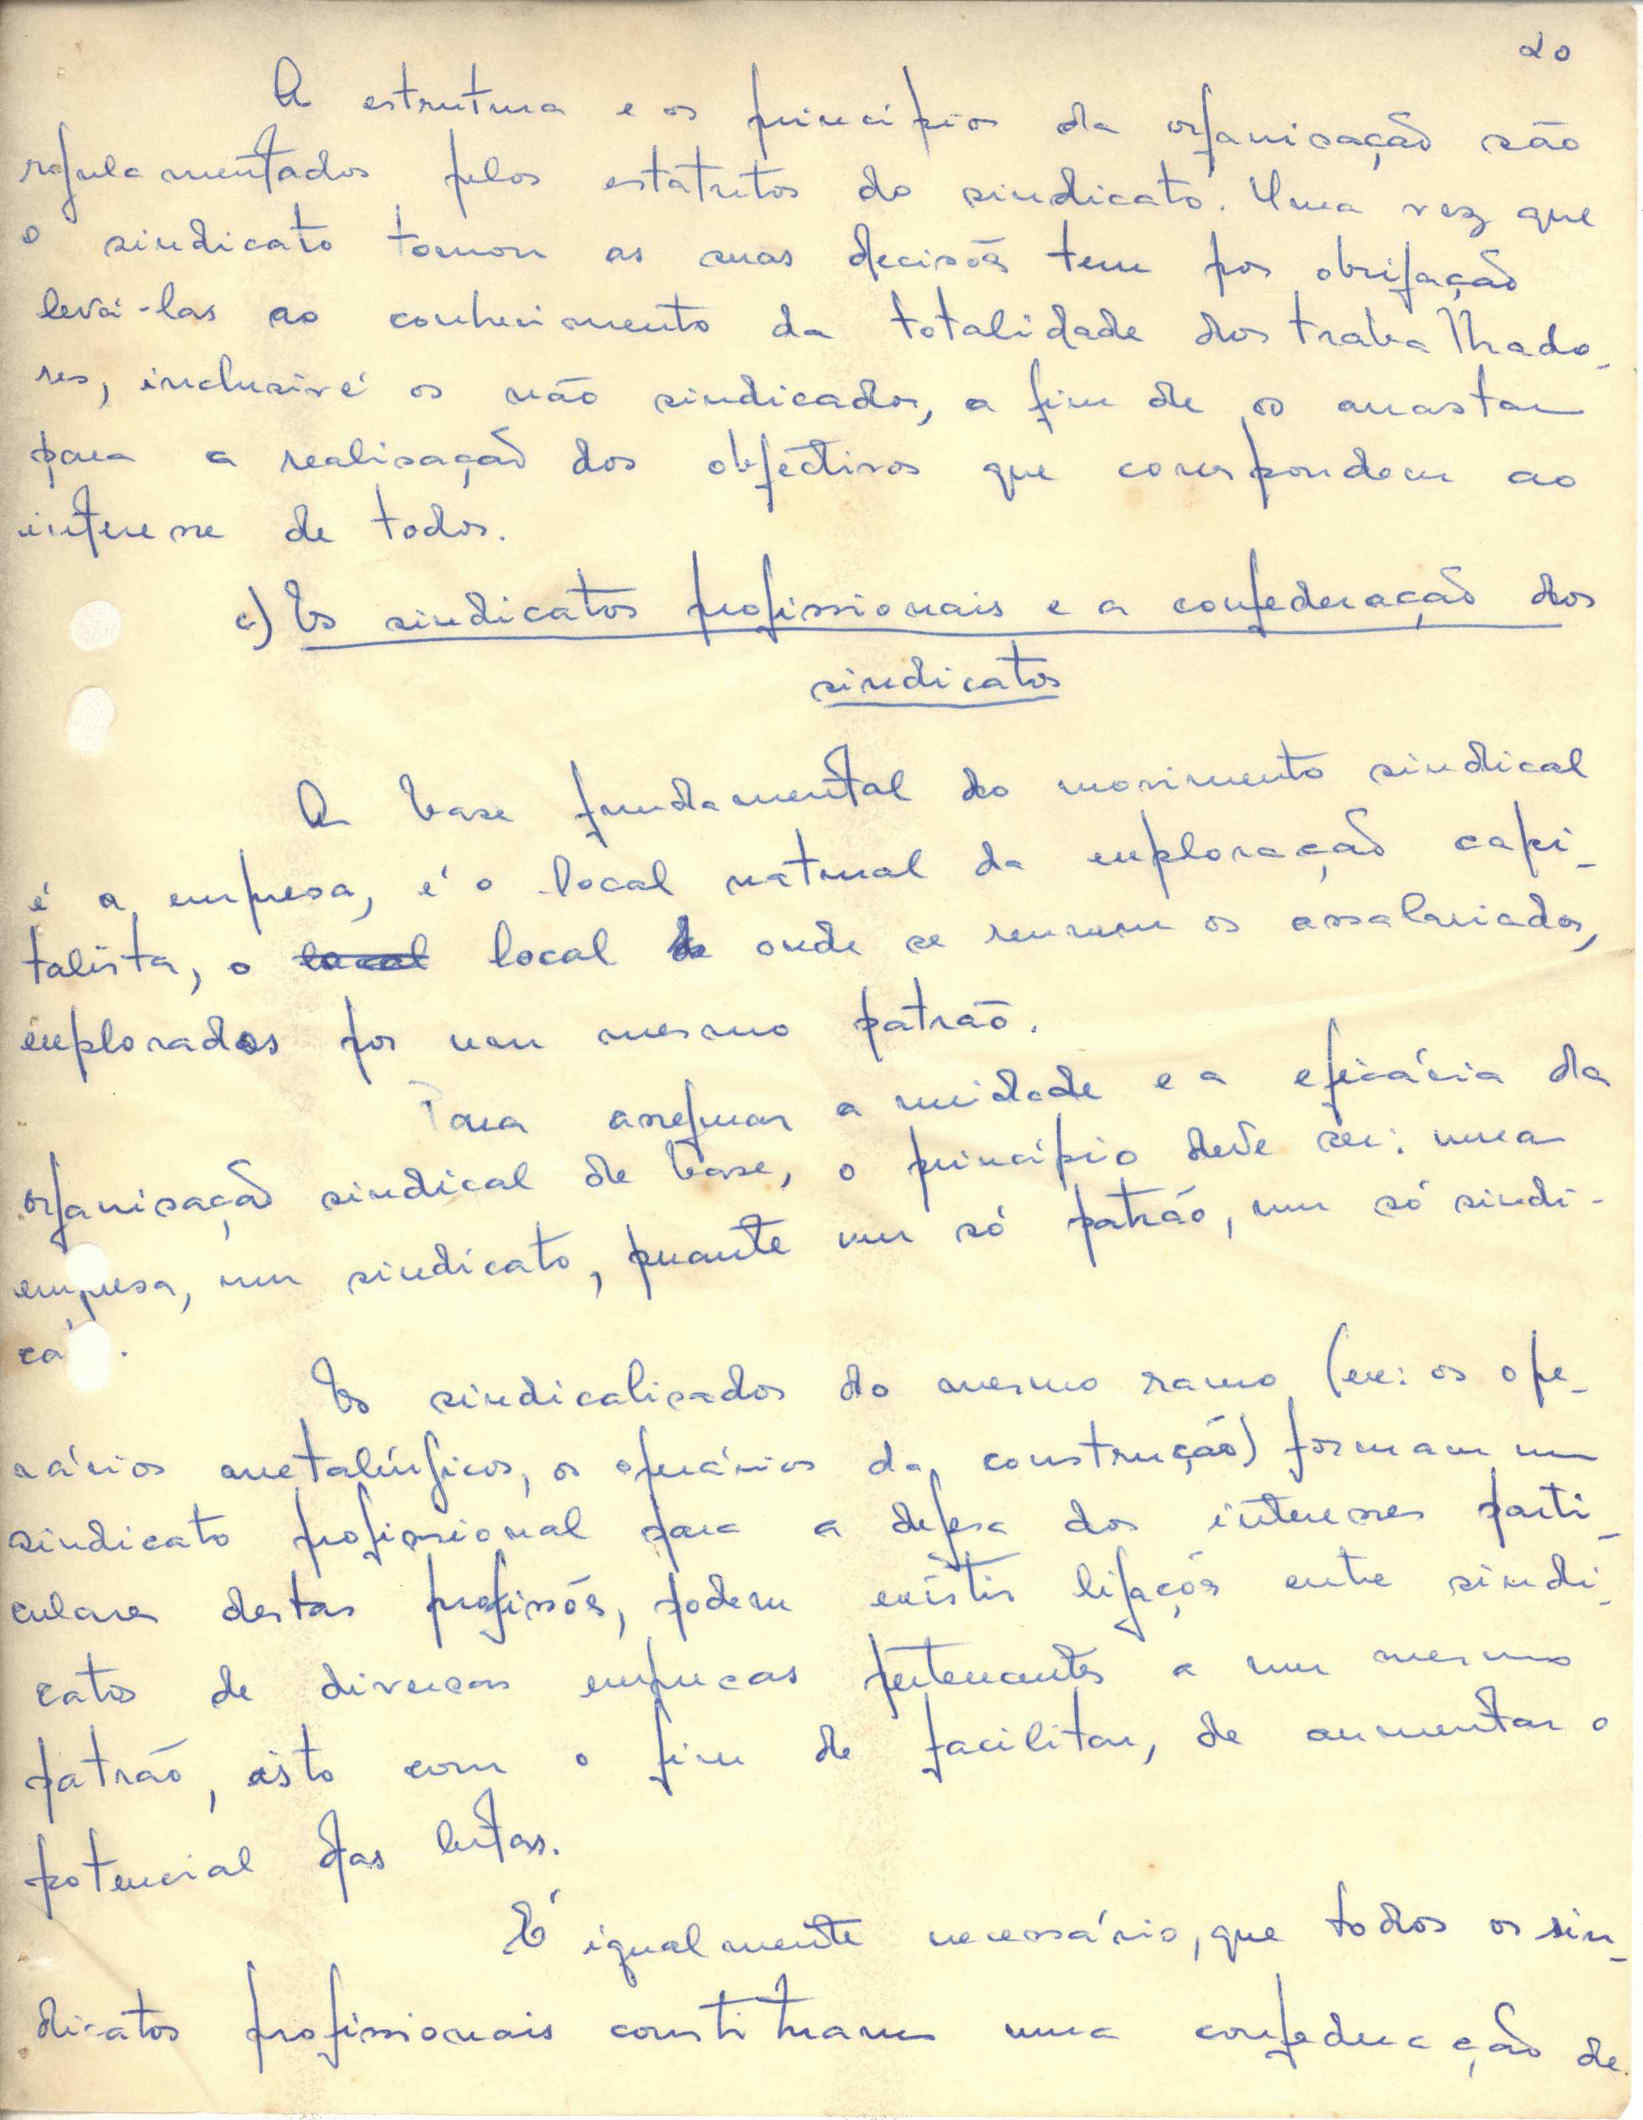 20
A estrutura e os princípios da organisação são
regulamentados pelos estatutos do sindicato. Uma vez que
o sindicato tomou as suas decisões tem por obrigação
levá-las ao conhecimento da totalidade dos trabalhado-
res, inclusivé os não sindicados, a fim de os arrastar
para a realisação dos objectivos que correspondem ao
interesse de todos.
c) Os sindicatos profissionais e a confederação dos
sindicatos
A base fundamental do movimento sindical
é a empresa, é o local natural da exploração capi-
talista, o local local de onde se reunem os assalariados,
explorados por um mesmo patrão.
Para assegurar a unidade e a eficácia da
organisação sindical de base, o princípio deve ser: uma
empresa, um sindicato, perante um só patrão, um só sindi-
cato.
Os sindicalisados do mesmo ramo (ex: os ope-
rários metalúrgicos, os operários da construção) formam um
sindicato profissional para a defesa dos interesses parti-
culares destas profissões, podem existir ligações entre sindi-
catos de diversas empresas pertencentes a um mesmo
patrão, isto com o fim de facilitar, de aumentar o
potencial das lutas.
É igualmente necessário, que todos os sin-
dicatos profissionais constituam uma confederação de